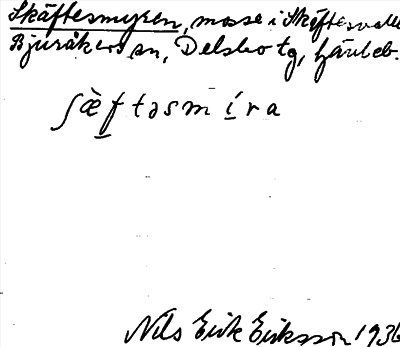 Skäftesmyren, mosse i Skäftesvall
Bjuråkers sn, Delsbo tg, Gävleb.
ʃæ̀ftəsmíra
Nils Erik Eriksson 1936